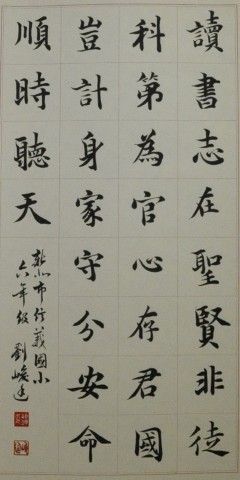 讀書志在聖賢非徒
科第為官心存君國
豈計身家守分安命
順時聽天
新北市行義國小
六年級 劉峻廷